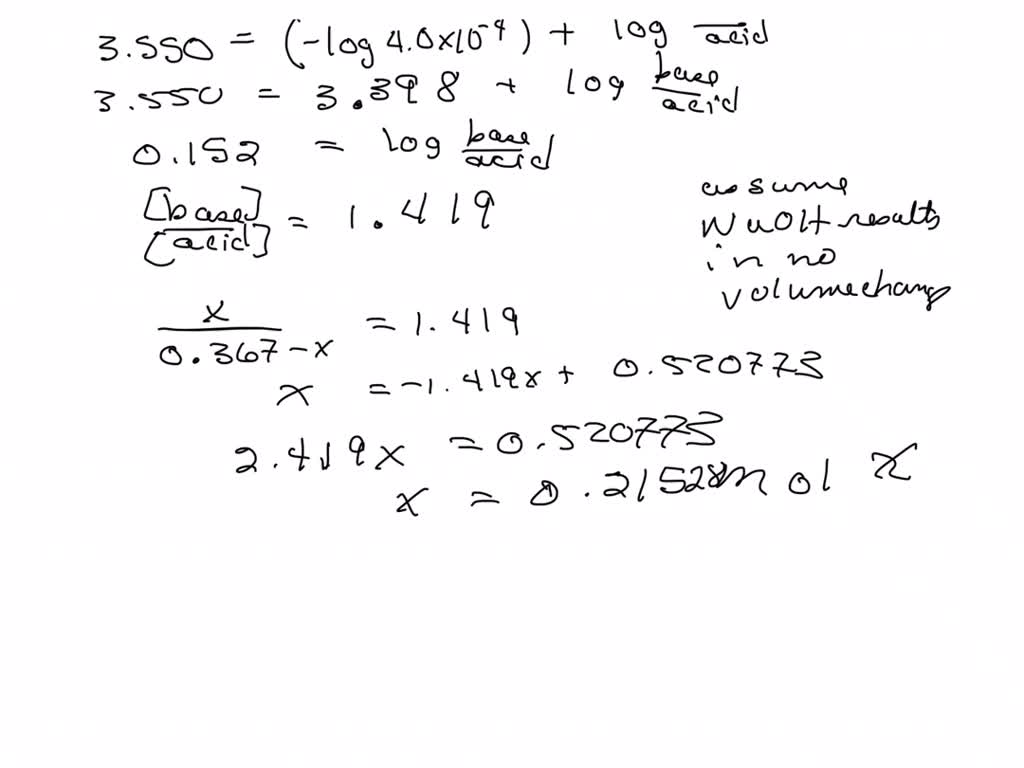 3.550 = (-log 4.0x10⁻⁴) + log acid
3.550 = 3.398 + log base/acid
0.152 = log base/acid
[base]/[acid] = 1.419
assume
NaOH results
in no
volume change
x/(0.367-x) = 1.419
x = -1.419x + 0.520773
2.419x = 0.520773
x = 0.21528 mol x